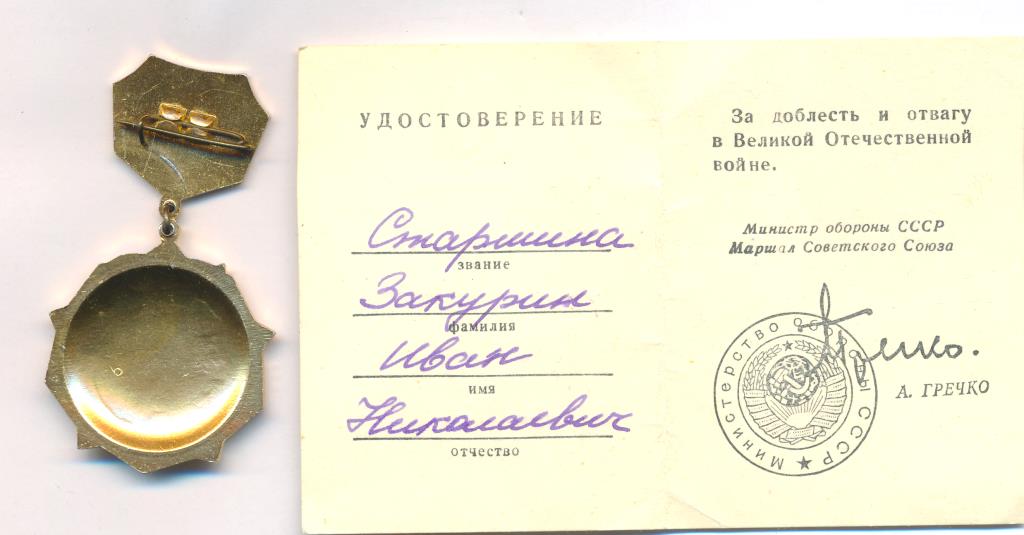 УДОСТОВЕРЕНИЕ
Старшина
звание
Закурин
фамилия
Иван
имя
Николаевич
отчество
За доблесть и отвагу
в Великой Отечественной
войне.
Министр обороны СССР
Маршал Советского Союза
Министерство обороны СССР
Гречко.
А. ГРЕЧКО